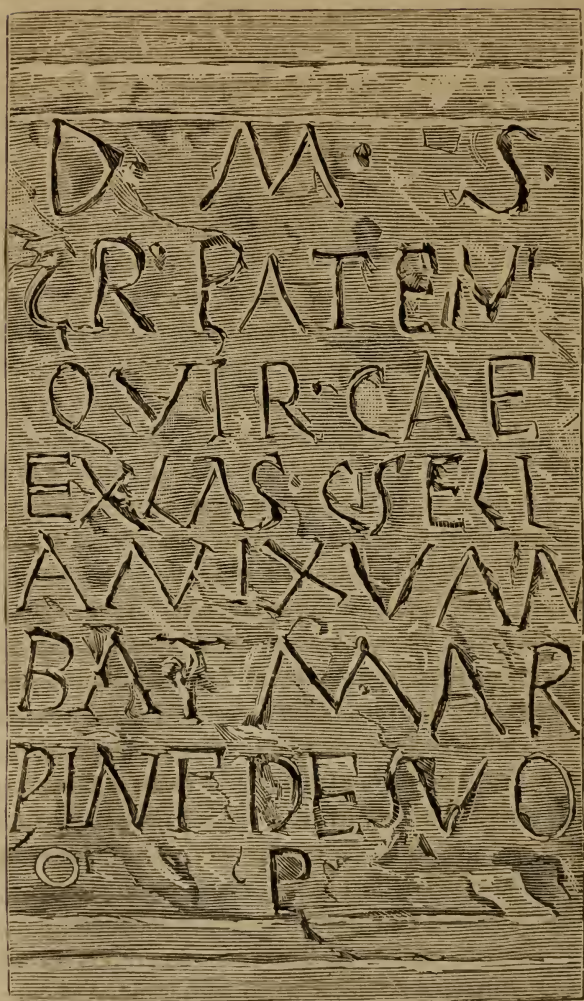 D M · S ·
CR · PATEN
QVIR · CAE
EXLAS · CISELI
ANIXVAN
BAT MAR
PINT DE SVO
O P